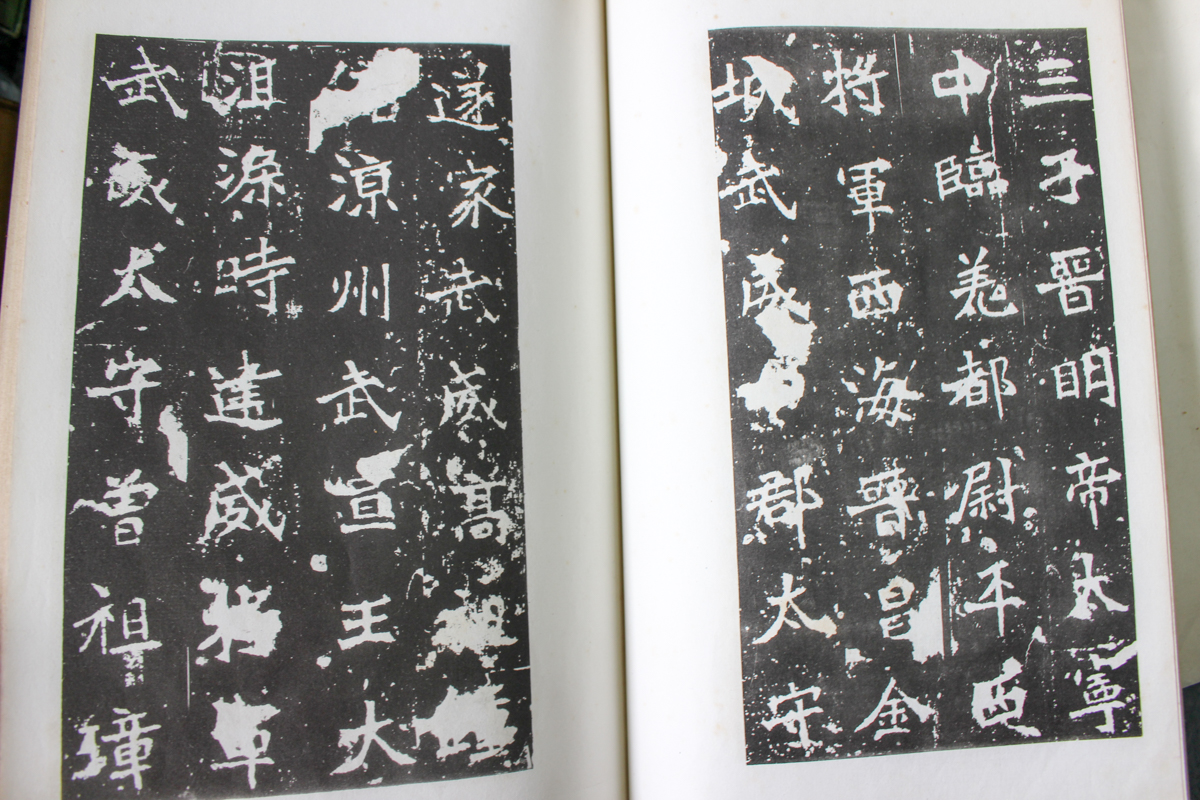 三子晉明帝太寧
中臨羌都尉平西
將軍西海晉昌金
城武威郡太守
遂家武威高祖
涼州武宣王大
沮渠時建威將軍
武威太守曾祖璋